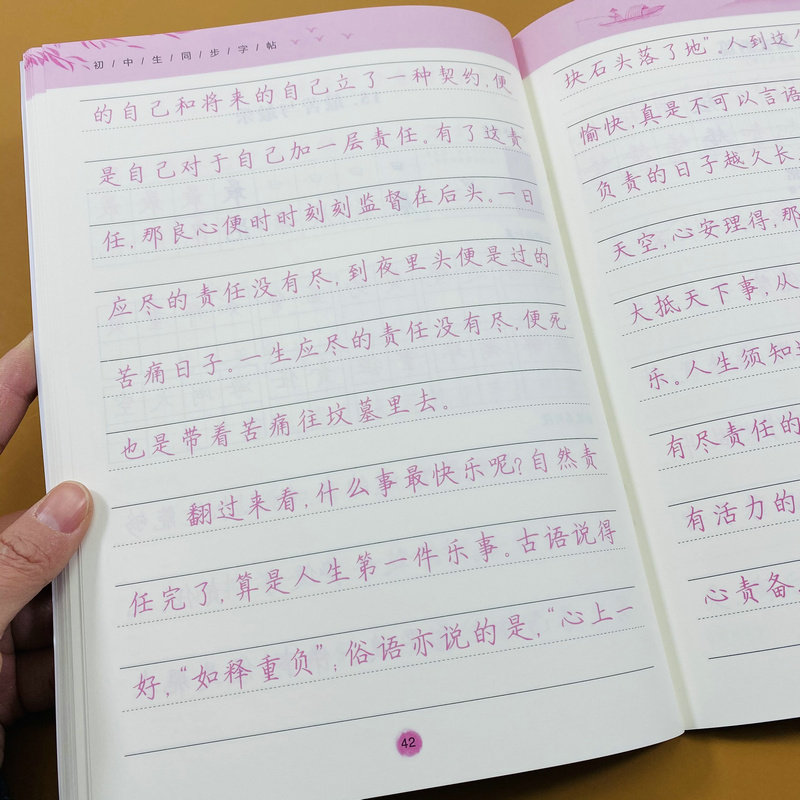 初/中/生/同/步/字/帖
的自己和将来的自己立了一种契约,便
是自己对于自己加一层责任。有了这责
任,那良心便时时刻刻监督在后头。一日
应尽的责任没有尽,到夜里头便是过的
苦痛日子。一生应尽的责任没有尽,便死
也是带着苦痛往坟墓里去。
翻过来看,什么事最快乐呢?自然责
任完了,算是人生第一件乐事。古语说得
好,“如释重负”;俗语亦说的是,“心上一
42
块石头落了地”人到这个
愉快,真是不可以言语
负责的日子越久长,
天空,心安理得,那
大抵天下事,从
乐。人生须知
有尽责任的
有活力的
心责备,